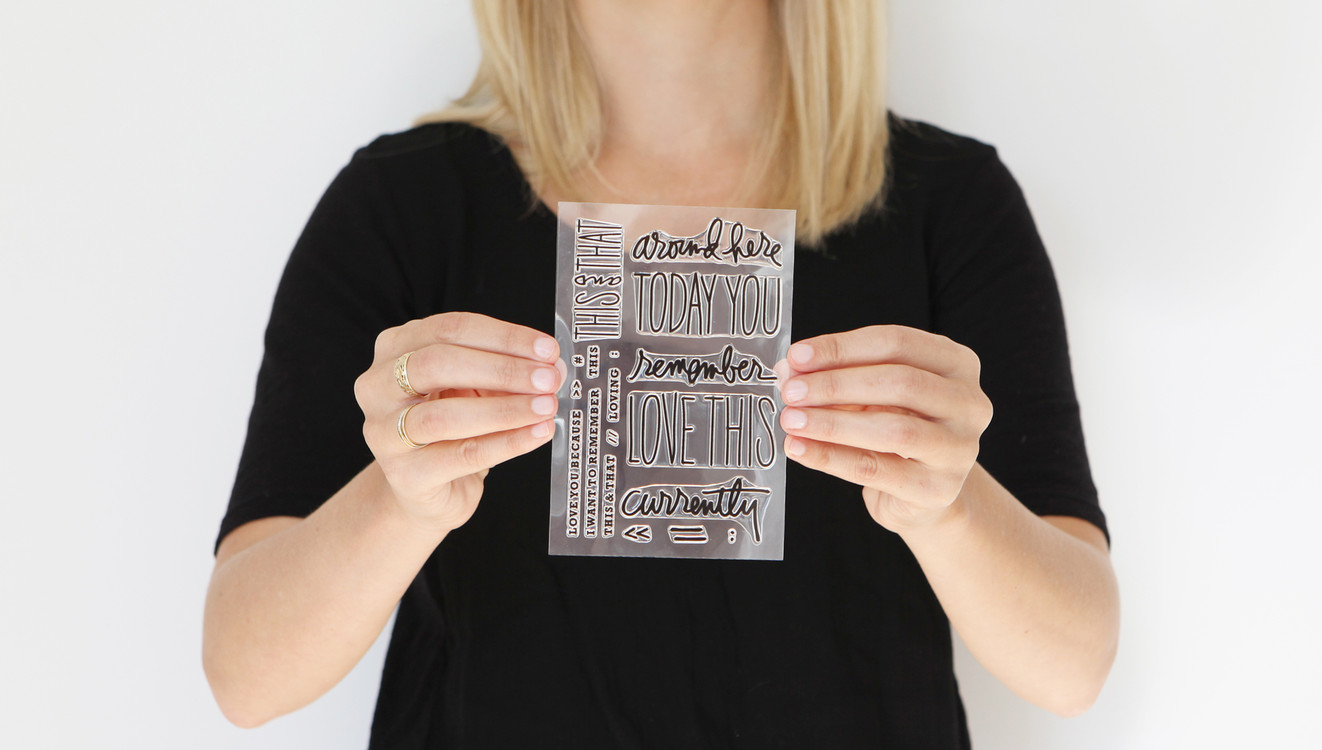 around here
TODAY YOU
remember
LOVE THIS
currently
THIS and THAT
LOVE YOU BECAUSE >> #
I WANT TO REMEMBER THIS
THIS & THAT // LOVING :
>> // :